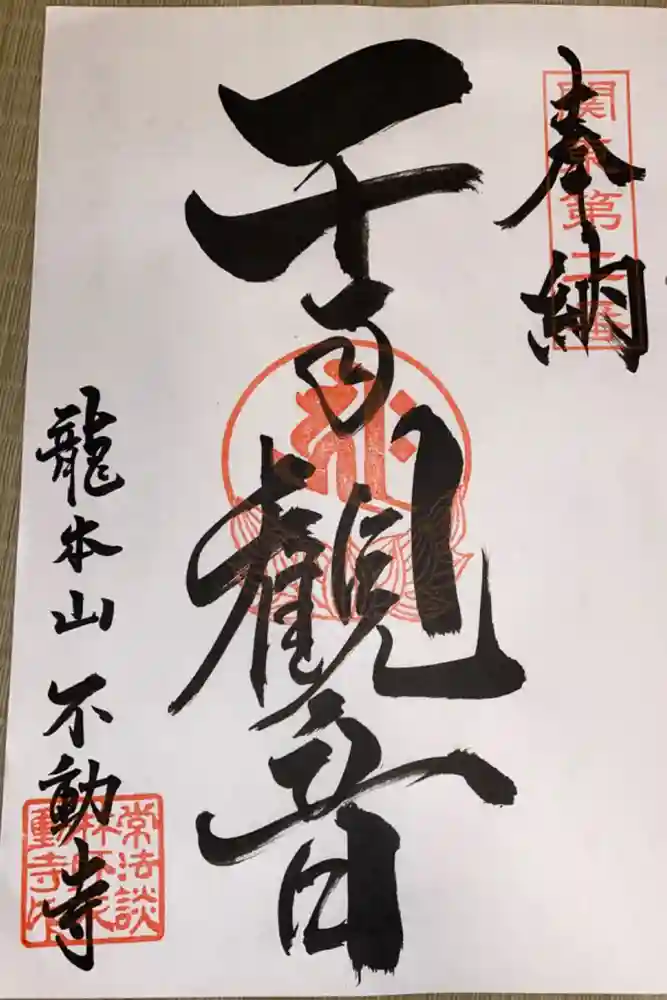 奉納
関東第二番
千手觀音
龍本山 不動寺
常法談